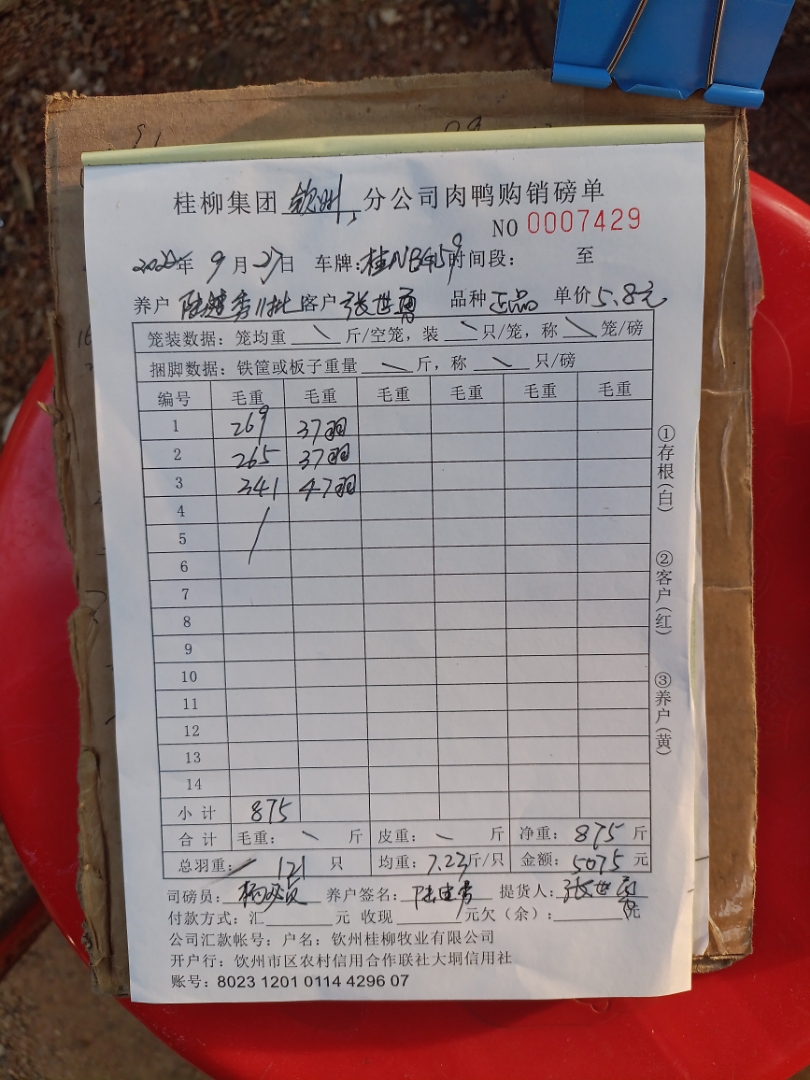 桂柳集团 钦州 分公司肉鸭购销磅单
NO 0007429
2022年 9 月 27日 车牌：桂NB459 时间段： 至
养户 陆健秀11批 客户 张世勇 品种 正品 单价 5.8元
笼装数据：笼均重 斤/空笼，装 只/笼，称 笼/磅
捆脚数据：铁筐或板子重量 斤，称 只/磅
编号 毛重 毛重 毛重 毛重 毛重 毛重
1 269 37羽
2 265 37羽
3 341 47羽
4
5
6
7
8
9
10
11
12
13
14
小计 875
合计 毛重： 斤 皮重： 斤 净重：875 斤
总羽重： 121 只 均重：7.23斤/只 金额：5075 元
司磅员： 养户签名： 提货人：张世勇
付款方式：汇 元 收现 元欠（余）： 元
公司汇款帐号：户名：钦州桂柳牧业有限公司
开户行：钦州市区农村信用合作联社大垌信用社
账号：8023 1201 0114 4296 07
①存根（白）
②客户（红）
③养户（黄）